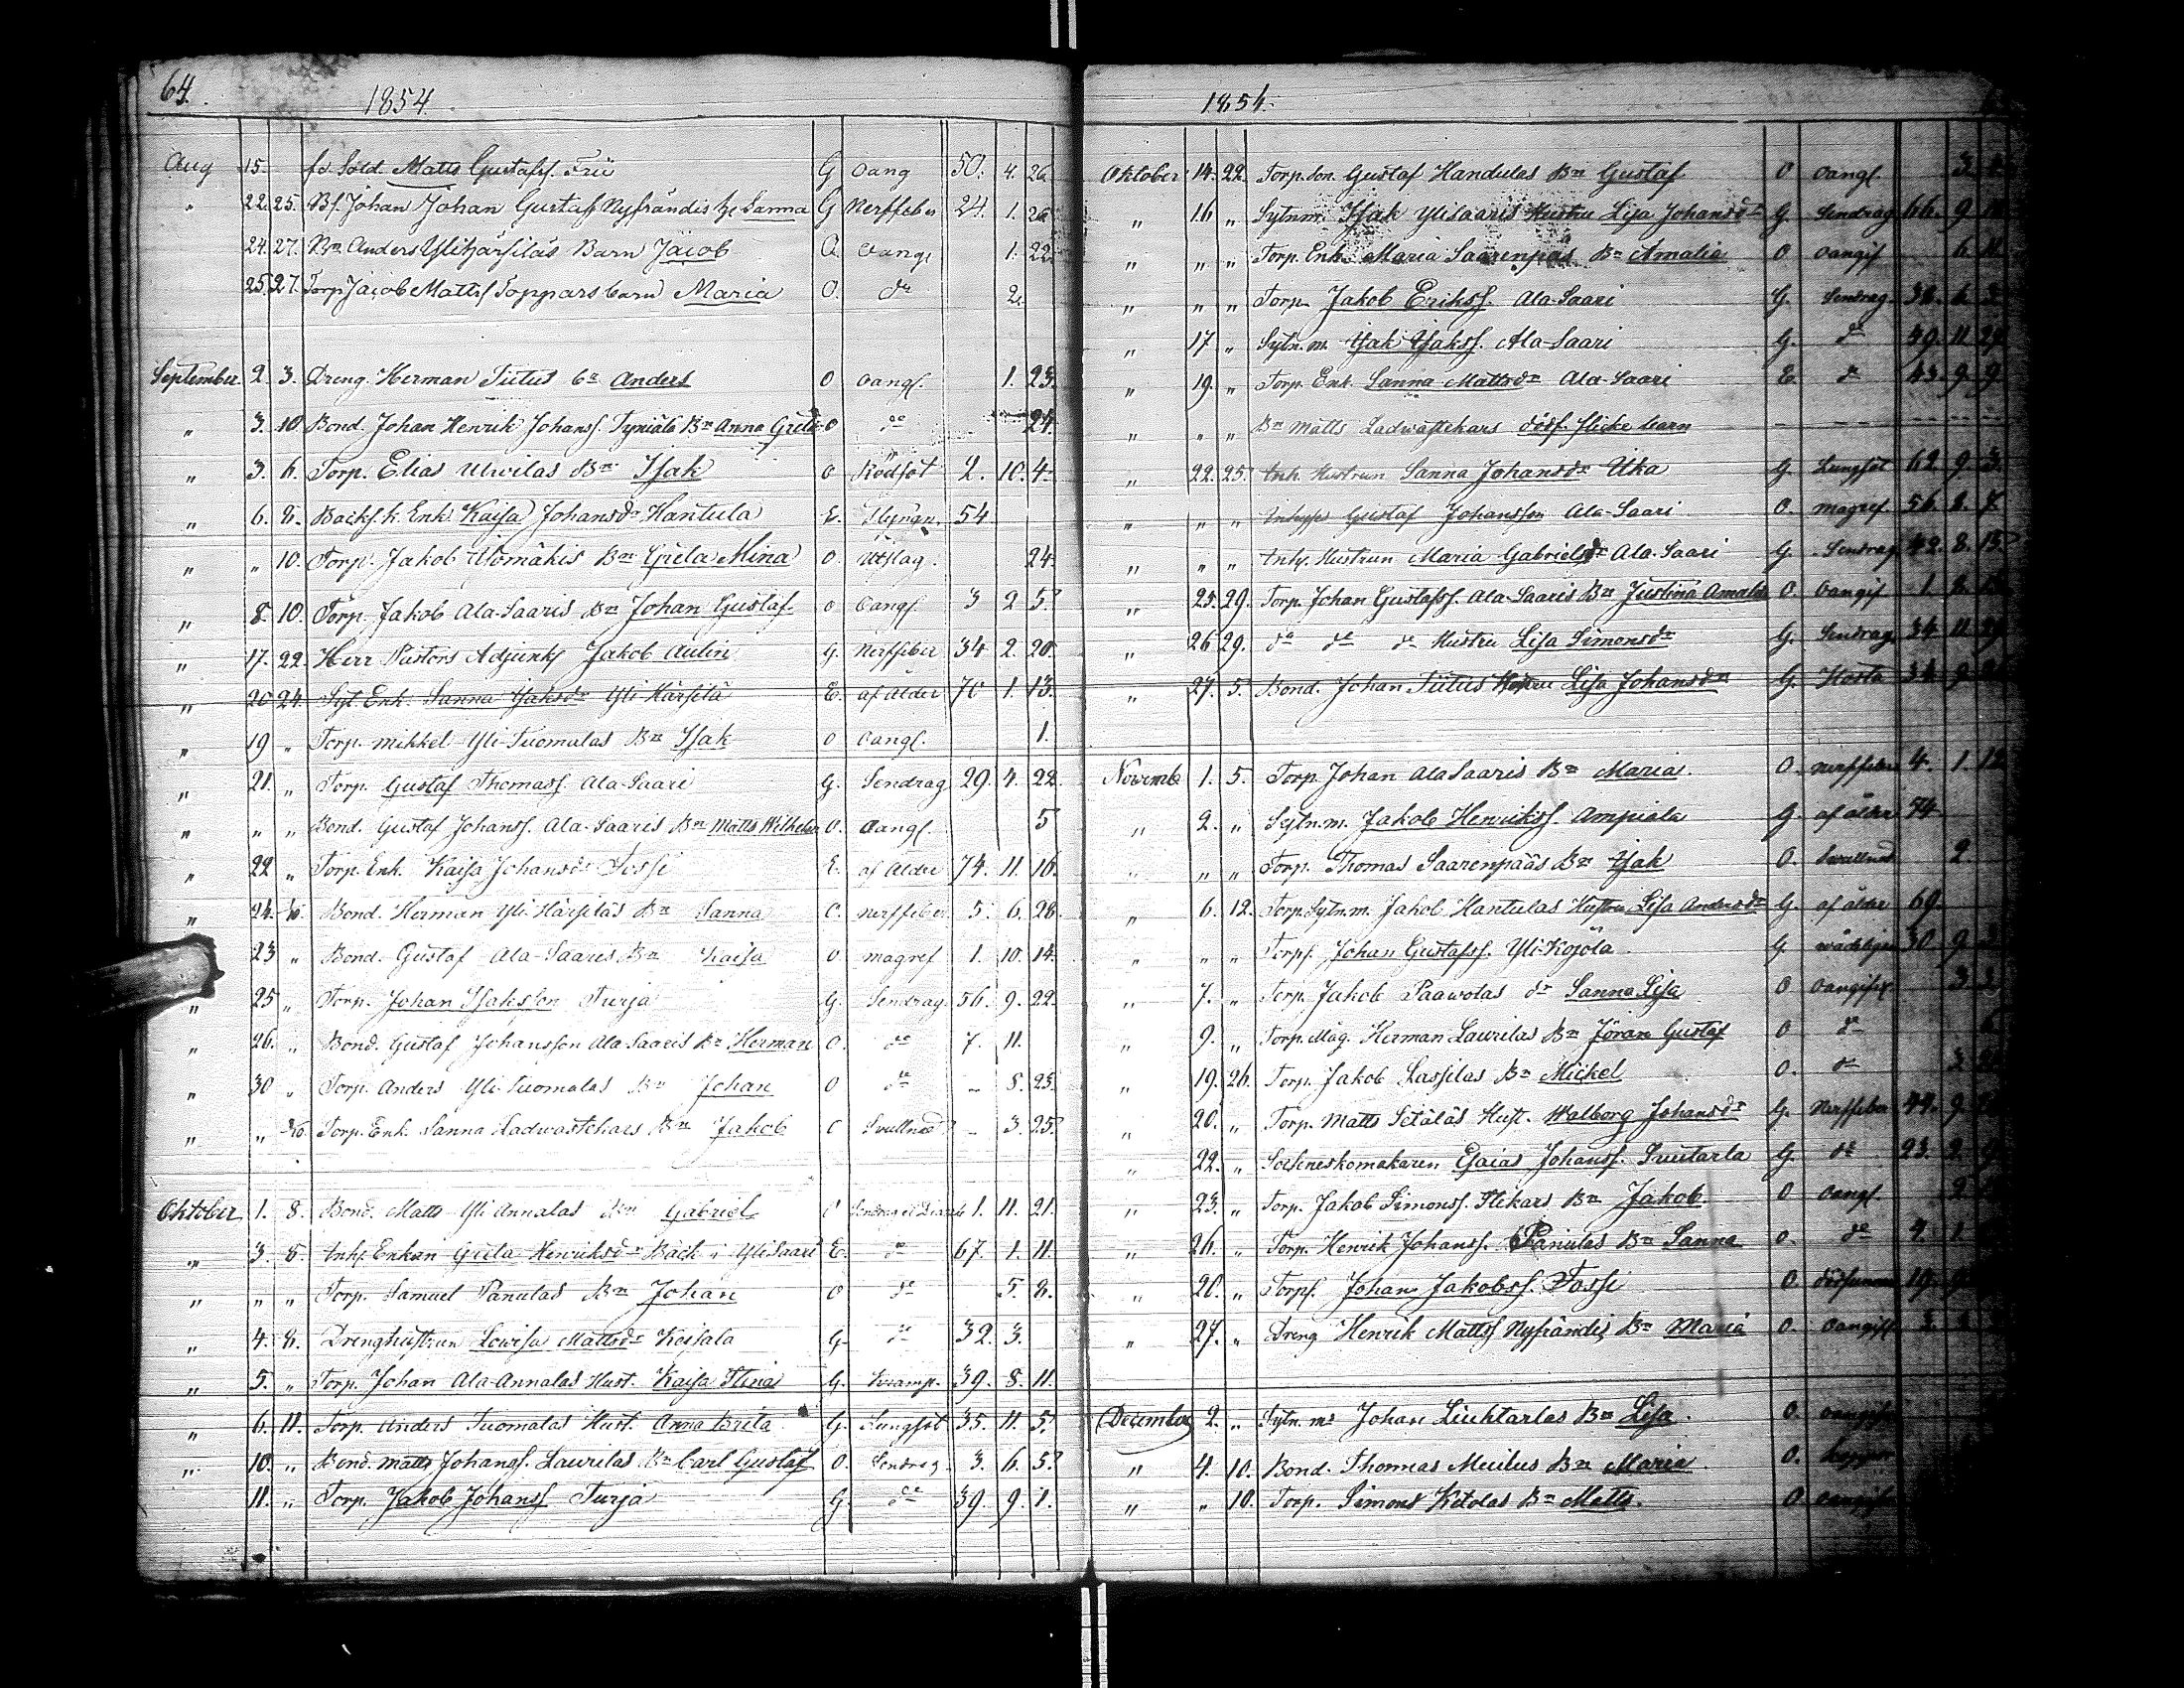 64.
1854.
Aug 15. fd Sold. Matts Gustafss. Frii G oang 50. 4. 26
" 22. 25. Bs. Johan Johan Gustafs Nyfrändis h. Sanna G Nerffeber 24. 1. 26
24. 27. Bn Anders Ylihärsiläs Barn Jacob O. oang. 1. 22.
25. 27. Torp Jacob Mattss Toppars barn Maria O. do 2.
September 2. 3. Dreng. Herman Tiitus bn Anders O oangf. 1. 23.
" 3. 10. Bond. Johan Henrik Johanss. Bn Anna Greta O do 24.
" 3. 6. Torp. Elias Urvilas Bn Isak O Rödsot 2. 10. 4.
" 6. 8. Backs. k. Enk Kaisa Johansdr Hantula E. 54
" " 10. Torp. Jakob Bn Greta Mina O. Utslag. 24.
" 8. 10. Torp. Jakob Ala-Saaris Bn Johan Gustaf. O Oangf. 3 2 5
" 17. 22. Herr Pastors Adjunkt Jakob Aulin G. Nerffeber 34 2. 20.
" 20 24. Syt Enk. Sanna Isaksdr Yli Härsilä E. af ålder 70 1. 13.
" 19 " Torp. Mikkel Yli-Tuomalas Bn Isak O oangf. 1.
" 21. " Torp. Gustaf Thomass. Ala-Saari G. Sendrag 29. 4. 22.
" " " Bond. Gustaf Johanss. Ala-Saaris Bn Matts Wilhelm O. Oangf. 5
" 22 " Torp. Enk. Kaisa Johansdr Fossi E. af Ålder 74. 11. 16.
" 24. Bond. Herman Yli-Härsiläs Bn Sanna O. nerffeber 5. 6. 28.
23 " Bond. Gustaf Ala-Saaris Bn Kaisa O magref 1. 10. 14.
" 25 " Torp. Johan Isaksson Turja G. Sendrag. 56. 9. 22.
" 26. " Bond. Gustaf Johansson Ala Saaris Bn Herman O. do 7. 11.
" 30 " Torp. Anders Yli-Tuomalas Bn Johan O do - 8. 23.
" " Torp. Enk. Sanna Ladwastekars Bn Jakob O Svullnad - 3. 25.
Oktober 1. 8. Bond. Matts Yli Annalas Bn Gabriel O 1. 11. 21.
" 3. 8. Inhs Enkan Greta Henriksdr Bäck i Yli Saari E. do 67. 1. 11.
" " " Torp. Samuel Panulas Bn Johan O do 5. 8.
" 4. 8. Drenghustrun Lovisa Mattsdr Kojsala G. do 32. 3.
" 5. " Torp. Johan Ala-Annalas Hust. Kaisa Stina G. Kramp. 39. 8. 11.
" 6. 11. Torp. Anders Tuomalas Hust. Anna Brita G. Lungsot 35. 11. 5.
" 10. " Bond. Matts Johanss. Laurilas Bn Carl Gustaf O. Sendrag. 3. 6. 5.
" 11. " Torp. Jakob Johanss Turja G. do 39. 9. 1.
1854.
Oktober 14. 22. Torp. son. Gustaf Handulas Bn Gustaf O oangf. 3.
" 16 " Sytn.m. Isak Ylisaaris Hustru Lisa Johansdr G. Sendrag 66. 9.
" " " Torp. Enk. Maria Saarenpääs Bn Amalia O oangif 6. 11.
" " " Torp. Jakob Erikss. Ala-Saari G. Sendrag. 38. 6. 3.
" 17 " Sytn. m. Isak Isakss. Ala-Saari G. do 49. 11
" 19. " Torp. Enk. Sanna Mattsdr Ala-Saari E. do 43. 9. 9.
" " " Bn Matts Ladwastekars dödf. flicke barn - - - - -
" 22. 25. Inh. Hustrun Sanna Johansdr Uka G. Lungsot 62. 9. 3.
" " " Inhys Gustaf Johansson Ala-Saari O. magref 56. 8. 7.
" " " Inhy. Hustrun Maria Gabrielsdr Ala-Saari G. Sendrag 42. 8. 15.
" 25. 29. Torp. Johan Gustafss. Ala-Saaris Bn Justina Amalia O. Oangif 1. 8.
" 26 29. do do do Hustru Lisa Simonsdr G. Sendrag 34 11
" 27. 5. Bond. Johan Tiitus Hustru Lisa Johansdr G. Hosta 34 9
Novemb 1. 5. Torp. Johan Ala Saaris Bn Maria. O. nerffeber 4. 1. 12
" 2. " Sytn.m. Jakob Henrikss. Ampiala G. af ålder 74
" " " Torp. Thomas Saarenpääs Bn Isak O. Svullnad 2.
" 6. 12. Torp. Sytn.m. Jakob Hantulas Hustru Lisa Andersdr G. af ålder 69.
" " " Torps. Johan Gustafss. Yli-Kojola G. 30 9
" 7. " Torp. Jakob Paawolas dr Sanna Lisa O oangifve 3
" 9. " Torp. Måg. Herman Laurilas Bn Jöran Gustaf O do
" 19. 26. Torp. Jakob Lassilas Bn Mickel O. do 3
" 20. " Torp. Matts Setäläs Hust. Walborg Johansdr G. Nerffeber 44. 9.
" 22. " Sockneskomakaren Esaias Johanss. Suutarla G. do 23. 2.
" 23. " Torp. Jakob Simonss. Bn Jakob O oangf. 2
" 26. " Torp. Henrik Johanss. Panulas Bn Sanna O. do 4. 1.
" 20. " Torps. Johan Jakobss. Fossi O. 19.
" 27. " Dreng Henrik Mattss Nyfrändis Bn Maria O. Oangif
December 2. " Sytn. ms Johan Liuhtarlas Bn Lisa. O. oangif
" 4. 10. Bond. Thomas Muilus Bn Maria. O.
" " 10. Torp. Simons Ketolas Bn Matts. O. oangif